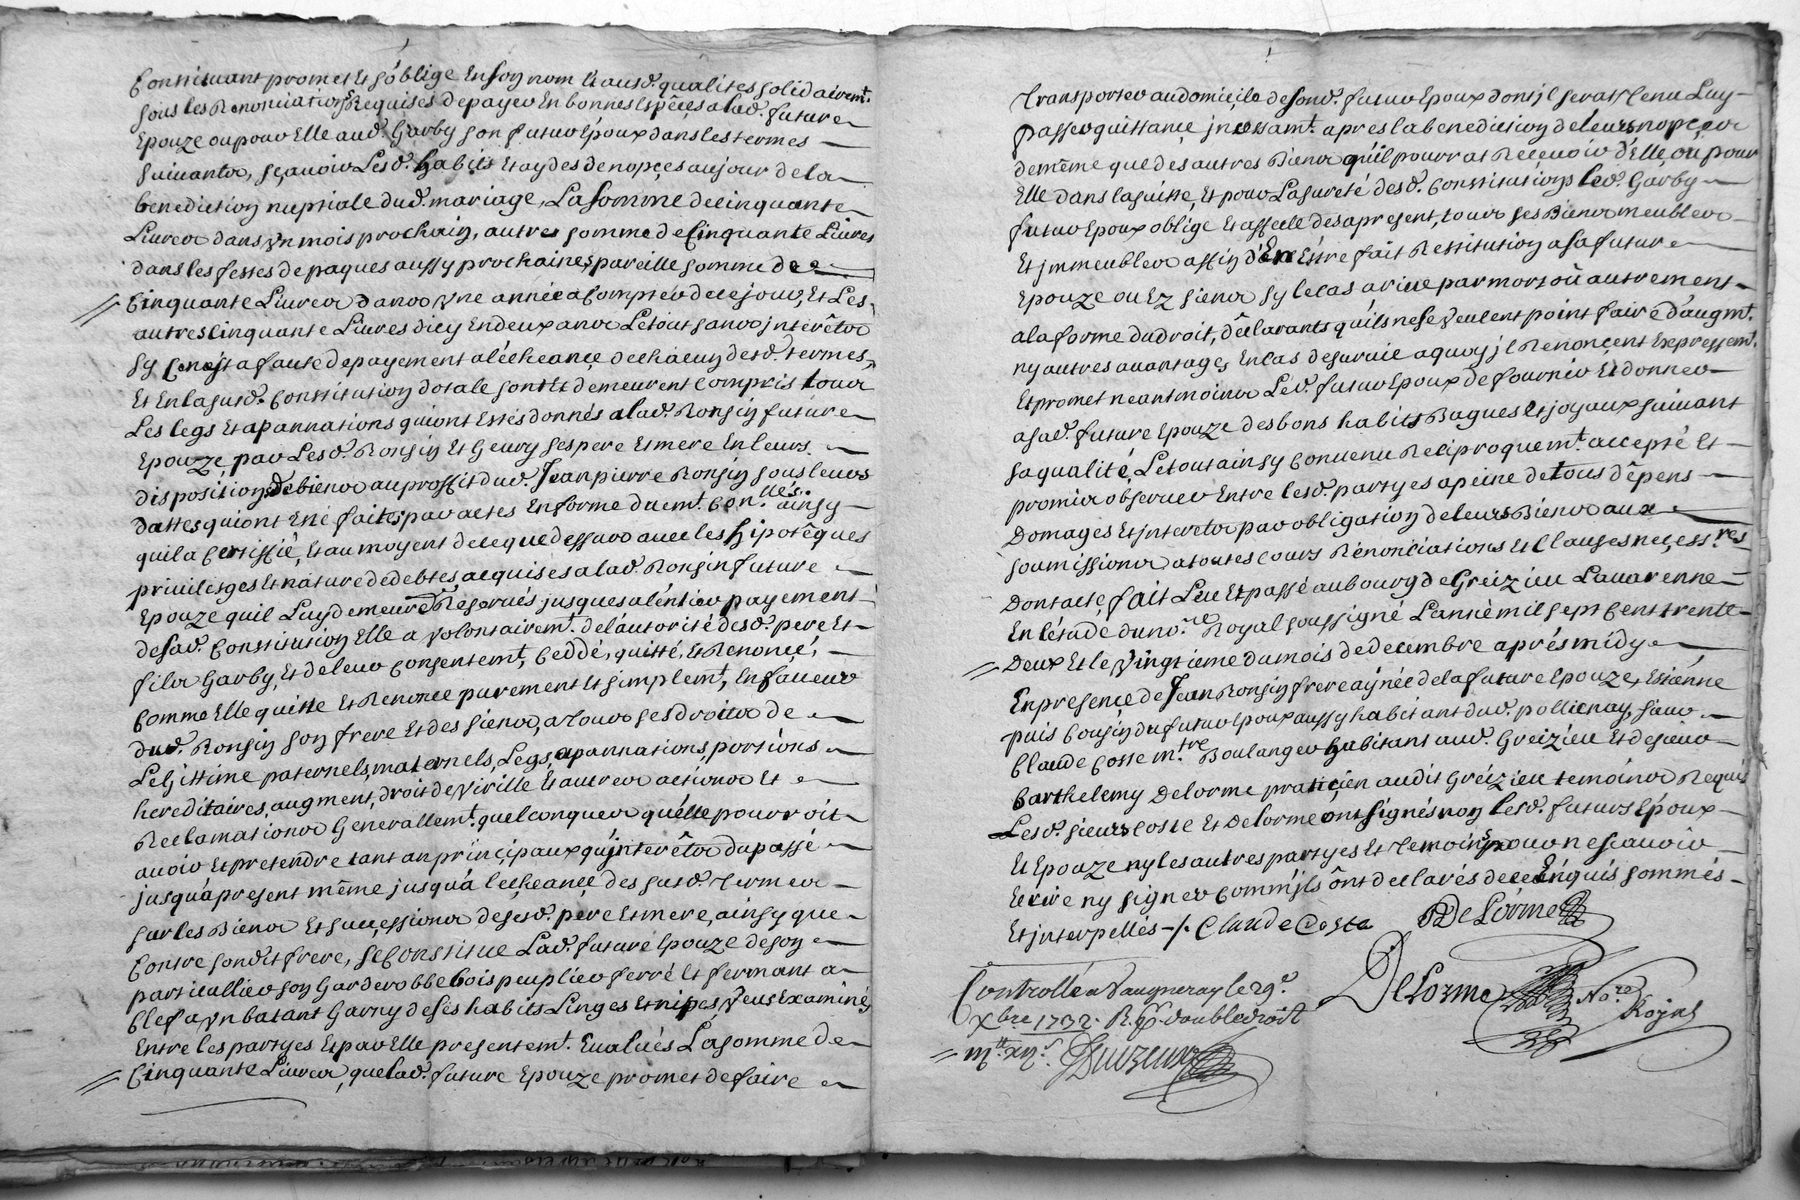 Constituant promet Et s'oblige En son nom Et ausd. qualites solidairemt.
sous les Renonciations Requises de payer En bonnes Espêçes a lad. future
Epouze ou pour Elle aud. Garby son futur Epoux dans les termes
suivants, sçavoir Lesd. habits Et aydes de nopçes au jour de la
benediction nuptiale dud. mariage, La somme de cinquante
Livres dans un mois prochain, autres somme de Cinquante Livres
dans les festes de paques aussy prochaines, pareille somme de
Cinquante Livres dans une année a Compter de ce jour, Et Les
autres Cinquante Livres d'icy En deux ans Le tout sans interêts
sy Ce n'est a faute de payement a l'écheançe de chacun desd. termes,
Et En la susd. Constitution dotale sont Et demeurent Compris tous
Les legs Et apannations qui ont Estés donnés a lad. Ronsin future
Epouze, par Lesd. Ronsin Et Geury ses pere Et mere En leurs
dispositions de biens au proffit dud. Jean pierre Ronsin sous leurs
dattes qui ont Eté faites par actes En forme duemt. Conllés. ainsy
qu'il a Certiffié, Et au moyent de ce que dessus avec les hipotêques
privileges Et nature de debtes acquises a lad. Ronsin future
Epouze qu'il Luy demeure Reservés jusques a l'entier payement
de sad. Constitution Elle a volontairemt. de l'autorité desd. pere Et
fils Garby, Et de leur Consentemt. Ceddé, quitté, Et Renoncé,
Comme Elle quitte Et Renonce purement Et simplemt. En faveur
dud. Ronsin son frere Et des siens, a tous ses droits de
Legittime paternels, maternels, Legs, apannations, portions
hereditaires, augment, droit de virille Et autres actions Et
Reclamations Generallemt. quelconques qu'elle pourroit
avoir Et pretendre tant an prinçipaux qu'interêts du passé
jusqu'a present même jusqu'a l'echeançe des susd. Termes
sur les Biens Et sucçessions de sesd. pere Et mere, ainsy que
Contre sondit frere, se Constitue Lad. future Epouze de son
particullier son Garderobbe bois peuplier ferré Et fermant a
Clef a un batant Garny de ses habits Linges Et nipes, veus Examinés
Entre les partyes Et par Elle presentemt. Evalués La somme de
Cinquante Livres, que lad. future Epouze promet de faire
Transporter au domiçile de sond. futur Epoux dont il serat Tenu Luy
passer quittançe incessamt. apres la benediction de leurs nopçes
de même que des autres Biens qu'il pourrat Recevoir d'Elle, ou pour
Elle dans la suitte, Et pour La sureté desd. Constitutions led. Garby
futur Epoux oblige Et affecte des a present, tous ses Biens meubles
Et immeubles affin d'En Estre fait Restitution a sa future
Epouze ou Ez siens sy le cas arive par mort ou autrement
a la forme du droit, déclarants qu'ils ne se veulent point faire d'augmt.
ny autres avantages En cas de survie a quoy il Renonçent Expressemt.
Et promet neantmoins Led. futur Epoux de fournir Et donner
a sad. future Epouze des bons habits Bagues Et joyaux suivant
sa qualité, Le tout ainsy Convenu Reciproquemt. accepté Et
promis observer Entre lesd. partyes a peine de tous dêpens
Domages Et interets par obligation de leurs Biens aux
soumissions a toutes cours Renonciations Et Clauses neçessres
Dont acte, fait Leu Et passé au bourg de Greizieu Lavarenne
En l'étude du nore. Royal soussigné L'année mil sept Cent trente
Deux Et le vingtieme du mois de decembre aprés midy
En presence de Jean Ronsin frere aynée de la future Epouze, Estienne
puis Cousin du futur Epoux aussy habitant dud. pollienay, sieur
Claude Coste mtre Boulanger habitant aud. Greizieu Et de sieur
Barthelemy Delorme pratiçien audit Greizieu temoins Requis
Lesd. sieurs Coste Et Delorme ont signés non lesd. futurs Epoux
Et Epouze ny les autres partyes Et Temoins pour ne sçavoir
Ecrire ny signer Comm'ils ônt declarés de ce Enquis sommés
Et interpellés -/. Claude Coste BDelorme
Controllé a Vaugneray le 29e.
xbre 1732. R. double droit
Delorme Nore Royal